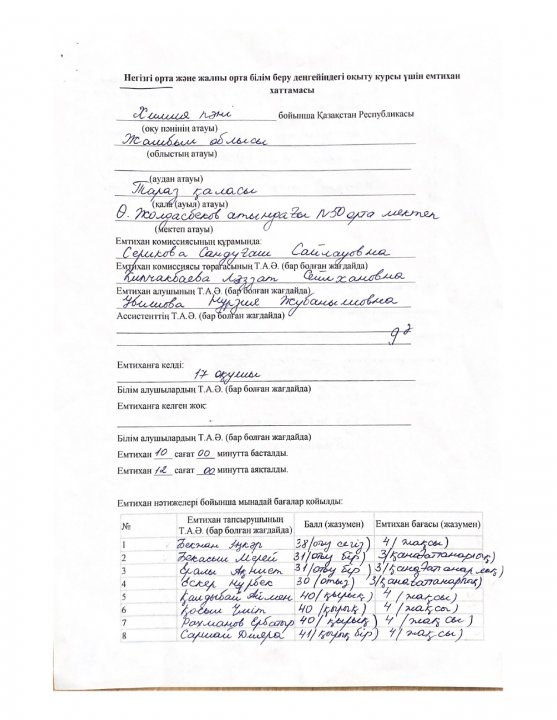 Негізгі орта және жалпы орта білім беру деңгейіндегі оқыту курсы үшін емтихан
хаттамасы
Химия пәні бойынша Қазақстан Республикасы
(оқу пәнінің атауы)
Жамбыл облысы
(облыстың атауы)
(аудан атауы)
Тараз қаласы
(қала (ауыл) атауы)
Ө. Жолдасбеков атындағы №50 орта мектеп
(мектеп атауы)
Емтихан комиссиясының құрамында:
Серикова Сандуғаш Сайлауовна
Емтихан комиссиясы төрағасының Т.А.Ә. (бар болған жағдайда)
Кипчакбаева Ляззат Сейлхановна
Емтихан алушының Т.А.Ә. (бар болған жағдайда)
Нурзия Жубанышовна
Ассистенттің Т.А.Ә. (бар болған жағдайда)
9
Емтиханға келді:
17 оқушы
Білім алушылардың Т.А.Ә. (бар болған жағдайда)
Емтиханға келген жоқ:
Білім алушылардың Т.А.Ә. (бар болған жағдайда)
Емтихан 10 сағат 00 минутта басталды.
Емтихан 12 сағат 00 минутта аяқталды.
Емтихан нәтижелері бойынша мынадай бағалар қойылды:
№ Емтихан тапсырушының Т.А.Ә. (бар болған жағдайда) Балл (жазумен) Емтихан бағасы (жазумен)
1 Бекжан 38/отыз сегіз) 4/жақсы)
2 Бекасыл Мерей 31/отыз бір) 3/қанағаттанарлық)
3 Ералы Ақниет 31/отыз бір) 3/қанағаттанарлық)
4 Әскер Нұрбек 30/отыз) 3/қанағаттанарлық)
5 Қандыбай Айман 40/қырық) 4/жақсы)
6 Қобыш Үміт 40/қырық) 4/жақсы)
7 Рахманов Ербатыр 40/қырық) 4/жақсы)
8 Сармай Дилера 41/қырық бір) 4/жақсы)